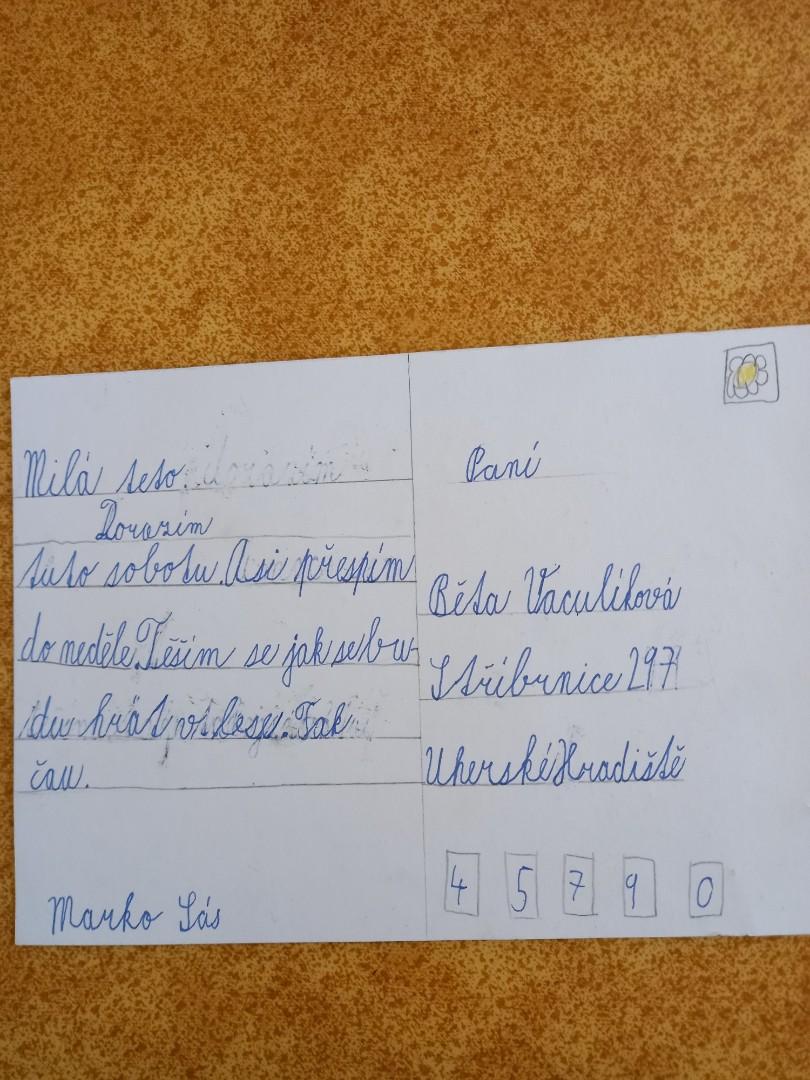 Milá teto.
Dorazím
tuto sobotu. Asi přespím
do neděle. Těším se jak se bu-
du hrát v lese. Tak
čau.
Marko Sás
Paní
Běta Vaculíková
Stříbrnice 297
Uherské Hradiště
4 5 7 9 0